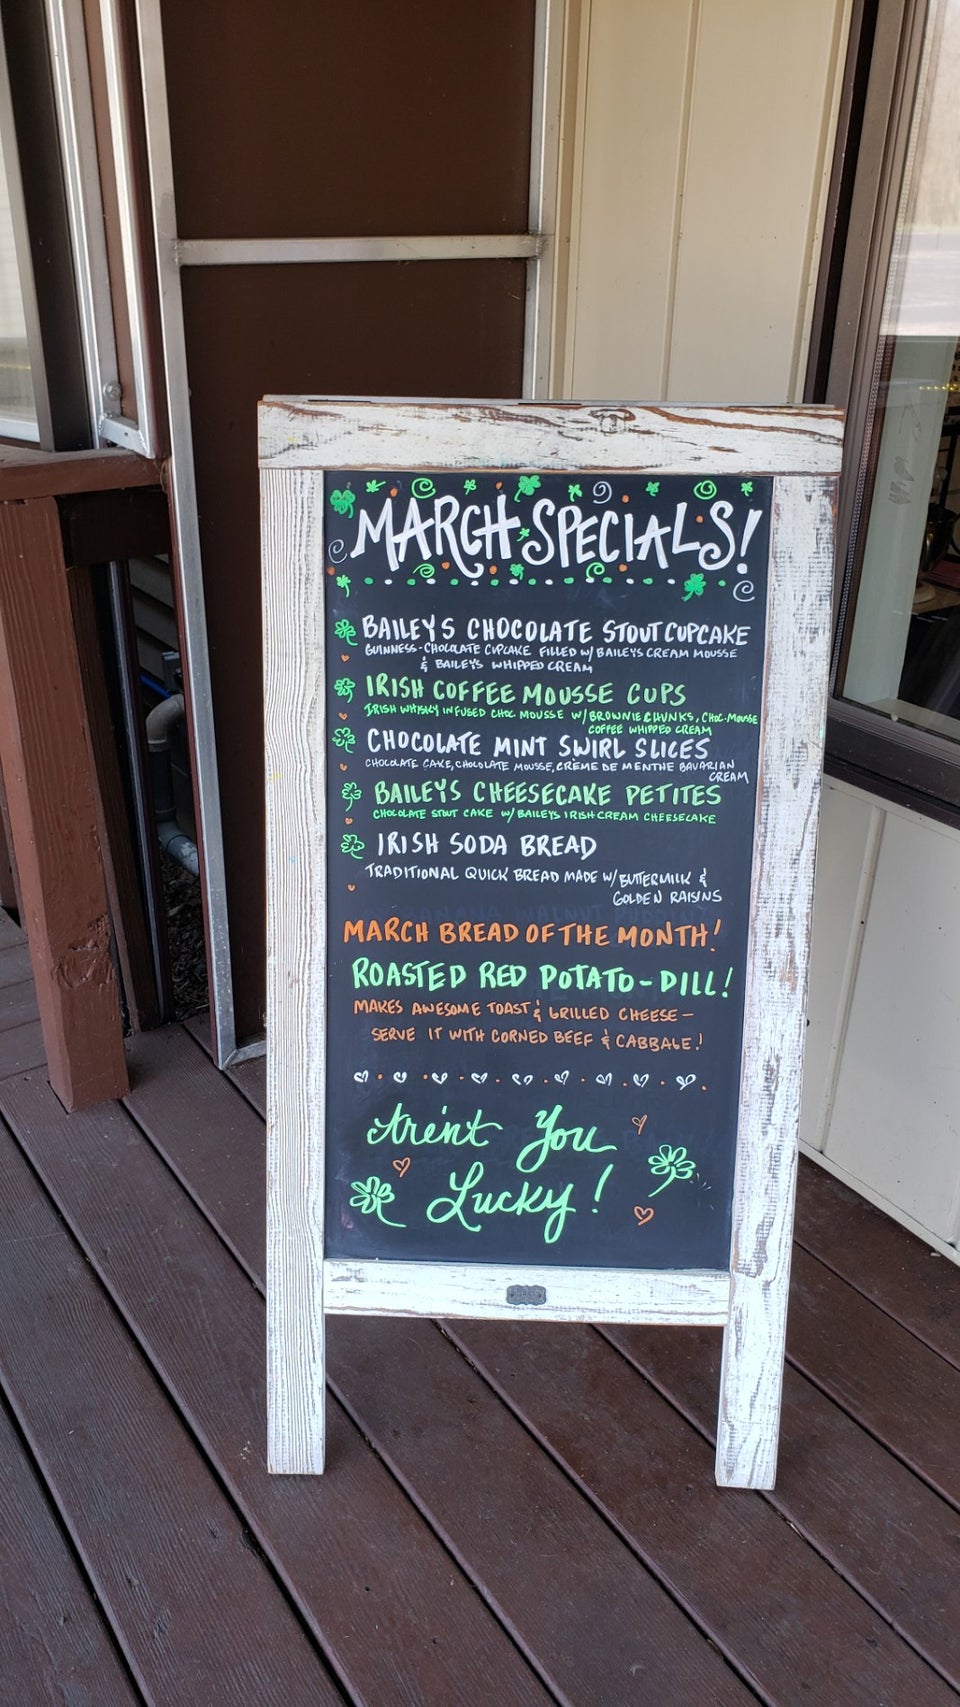 MARCH SPECIALS!
BAILEYS CHOCOLATE STOUT CUPCAKE
GUINNESS-CHOCOLATE CUPCAKE FILLED W/ BAILEYS CREAM MOUSSE
& BAILEYS WHIPPED CREAM
IRISH COFFEE MOUSSE CUPS
IRISH WHISKY INFUSED CHOC. MOUSSE W/ BROWNIE CHUNKS, CHOC. MOUSSE
COFFEE WHIPPED CREAM
CHOCOLATE MINT SWIRL SLICES
CHOCOLATE CAKE, CHOCOLATE MOUSSE, CRÈME DE MENTHE BAVARIAN
CREAM
BAILEYS CHEESECAKE PETITES
CHOCOLATE STOUT CAKE W/ BAILEYS IRISH CREAM CHEESECAKE
IRISH SODA BREAD
TRADITIONAL QUICK BREAD MADE W/ BUTTERMILK &
GOLDEN RAISINS
MARCH BREAD OF THE MONTH!
ROASTED RED POTATO-DILL!
MAKES AWESOME TOAST & GRILLED CHEESE-
SERVE IT WITH CORNED BEEF & CABBAGE!
Aren't You
Lucky!